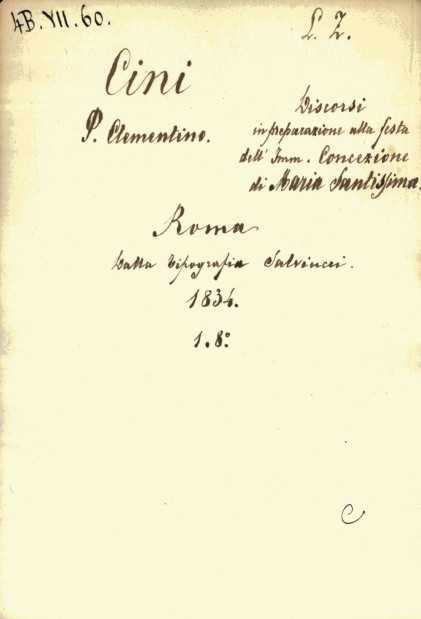 4B.VII.60.
L. Z.
Cini
P. Clementino.
Discorsi
in preparazione alla festa
dell' Imm. Concezione
di Maria Santissima.
Roma
Dalla Tipografia Salviucci.
1834.
1.8.°
C